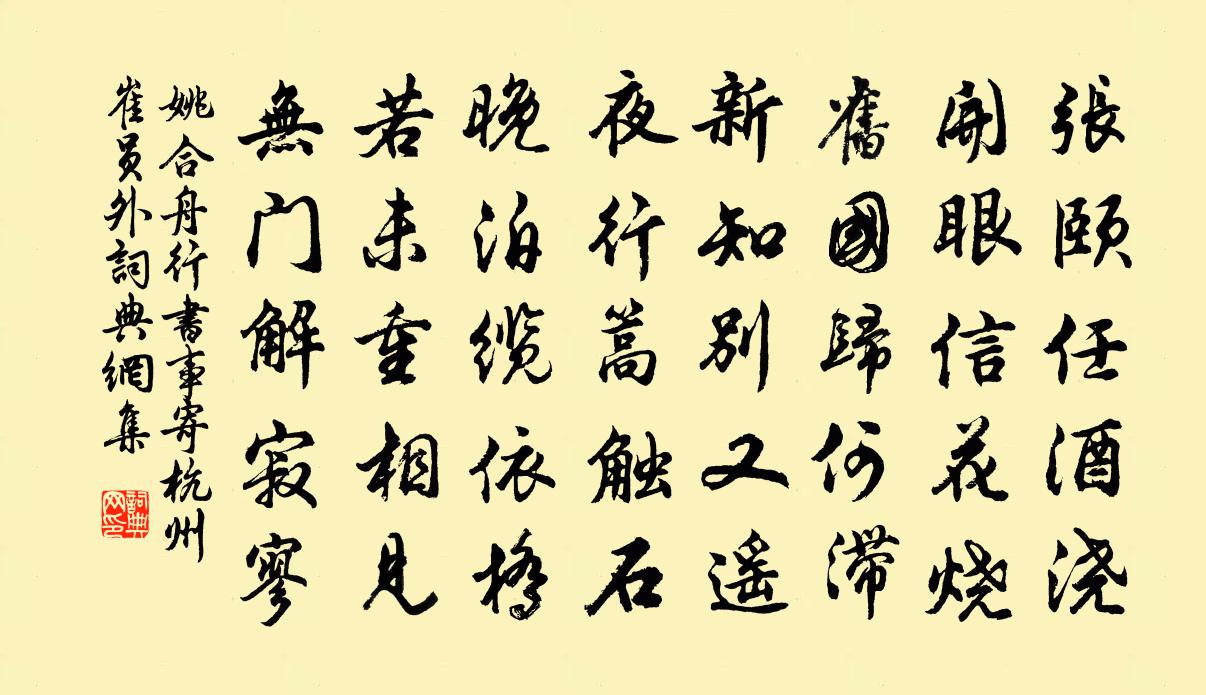 張頤任酒浇
開眼信花烧
舊國歸何滞
新知别又遥
夜行篙触石
晚泊缆依橋
若未重相見
無门解寂寥
姚合舟行書事寄杭州
崔員外詞典網集
詞典
网印